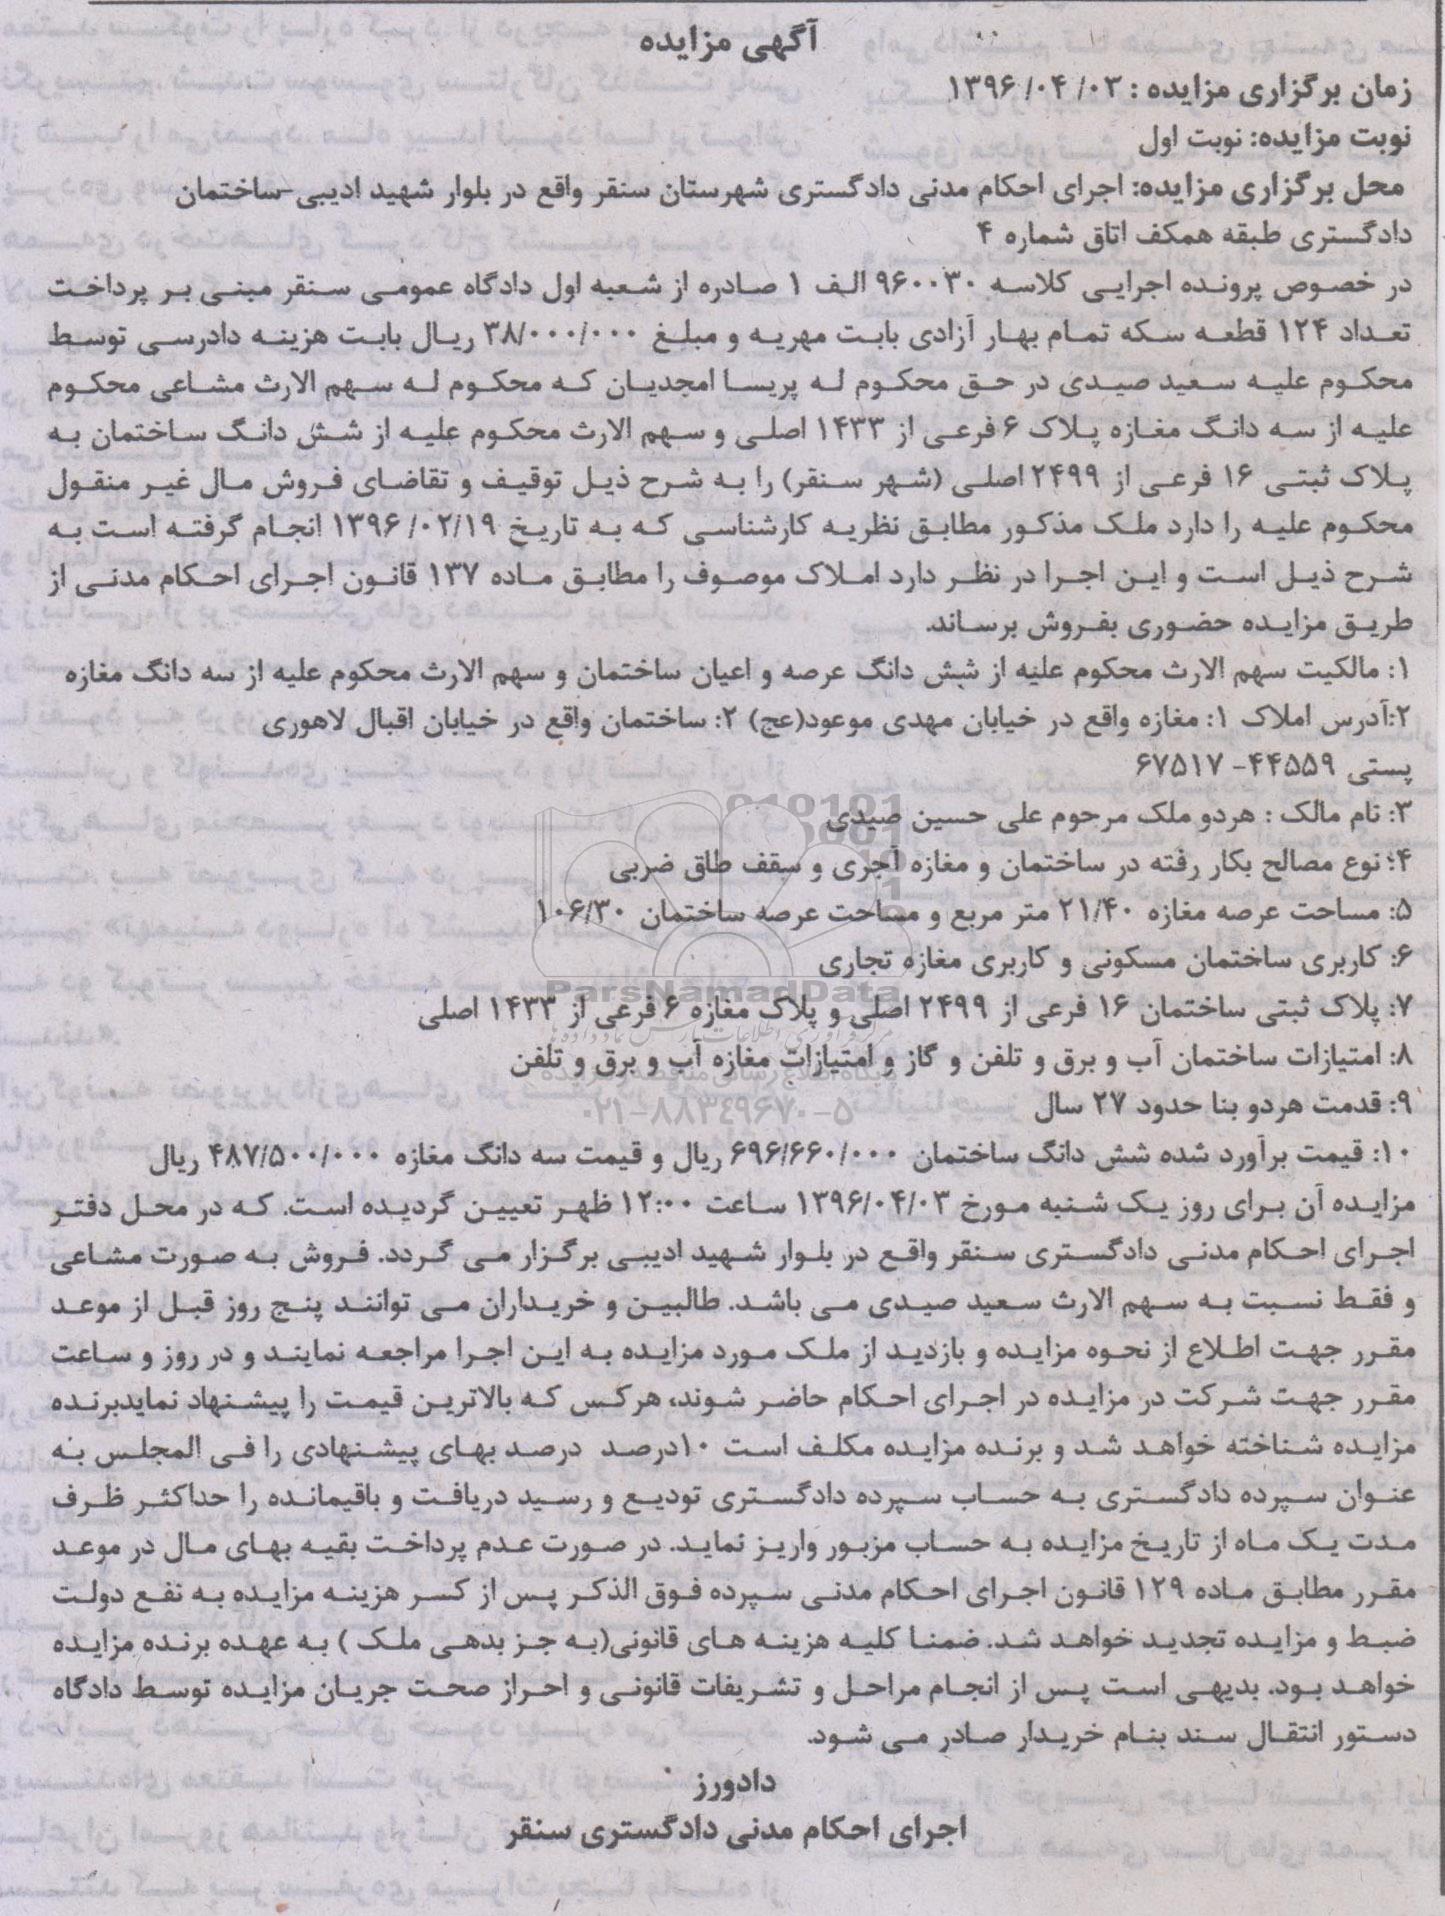 آگهی مزایده
زمان برگزاری مزایده : ۰۳/ ۰۴/ ۱۳۹۶
نوبت مزایده: نوبت اول
محل برگزاری مزایده: اجرای احکام مدنی دادگستری شهرستان سنقر واقع در بلوار شهید ادیبی-ساختمان
دادگستری طبقه همکف اتاق شماره ۴
در خصوص پرونده اجرایی کلاسه ۹۶۰۰۳۰ الف ۱ صادره از شعبه اول دادگاه عمومی سنقر مبنی بر پرداخت
تعداد ۱۲۴ قطعه سکه تمام بهار آزادی بابت مهریه و مبلغ ۳۸/۰۰۰/۰۰۰ ریال بابت هزینه دادرسی توسط
محکوم علیه سعید صیدی در حق محکوم له پریسا امجدیان که محکوم له سهم الارث مشاعی محکوم
علیه از سه دانگ مغازه پلاک ۶ فرعی از ۱۴۳۳ اصلی و سهم الارث محکوم علیه از شش دانگ ساختمان به
پلاک ثبتی ۱۶ فرعی از ۲۴۹۹ اصلی (شهر سنقر) را به شرح ذیل توقیف و تقاضای فروش مال غیر منقول
محکوم علیه را دارد ملک مذکور مطابق نظریه کارشناسی که به تاریخ ۱۳۹۶/۰۲/۱۹ انجام گرفته است به
شرح ذیل است و این اجرا در نظر دارد املاک موصوف را مطابق ماده ۱۳۷ قانون اجرای احکام مدنی از
طریق مزایده حضوری بفروش برساند.
۱: مالکیت سهم الارث محکوم علیه از شش دانگ عرصه و اعیان ساختمان و سهم الارث محکوم علیه از سه دانگ مغازه
۲:آدرس املاک ۱: مغازه واقع در خیابان مهدی موعود(عج) ۲: ساختمان واقع در خیابان اقبال لاهوری
پستی ۴۴۵۵۹- ۶۷۵۱۷
۳: نام مالک : هردو ملک مرحوم علی حسین صیدی
۴: نوع مصالح بکار رفته در ساختمان و مغازه آجری و سقف طاق ضربی
۵: مساحت عرصه مغازه ۲۱/۴۰ متر مربع و مساحت عرصه ساختمان ۱۰۶/۳۰
۶: کاربری ساختمان مسکونی و کاربری مغازه تجاری
ParsNamadData
۷: پلاک ثبتی ساختمان ۱۶ فرعی از ۲۴۹۹ اصلی و پلاک مغازه ۶ فرعی از ۱۴۳۳ اصلی
۸: امتیازات ساختمان آب و برق و تلفن و گاز و امتیازات مغازه آب و برق و تلفن
۹: قدمت هردو بنا حدود ۲۷ سال
۰۲۱-۸۸۳۴۹۶۷۰-۵
۱۰: قیمت برآورد شده شش دانگ ساختمان ۶۹۶/۶۶۰/۰۰۰ ریال و قیمت سه دانگ مغازه ۴۸۷/۵۰۰/۰۰۰ ریال
مزایده آن برای روز یک شنبه مورخ ۱۳۹۶/۰۴/۰۳ ساعت ۱۲:۰۰ ظهر تعیین گردیده است. که در محل دفتر
اجرای احکام مدنی دادگستری سنقر واقع در بلوار شهید ادیبی برگزار می گردد. فروش به صورت مشاعی
و فقط نسبت به سهم الارث سعید صیدی می باشد. طالبین و خریداران می توانند پنج روز قبل از موعد
مقرر جهت اطلاع از نحوه مزایده و بازدید از ملک مورد مزایده به این اجرا مراجعه نمایند و در روز و ساعت
مقرر جهت شرکت در مزایده در اجرای احکام حاضر شوند، هرکس که بالاترین قیمت را پیشنهاد نمایدبرنده
مزایده شناخته خواهد شد و برنده مزایده مکلف است ۱۰درصد درصد بهای پیشنهادی را فی المجلس به
عنوان سپرده دادگستری به حساب سپرده دادگستری تودیع و رسید دریافت و باقیمانده را حداکثر ظرف
مدت یک ماه از تاریخ مزایده به حساب مزبور واریز نماید. در صورت عدم پرداخت بقیه بهای مال در موعد
مقرر مطابق ماده ۱۲۹ قانون اجرای احکام مدنی سپرده فوق الذکر پس از کسر هزینه مزایده به نفع دولت
ضبط و مزایده تجدید خواهد شد. ضمنا کلیه هزینه های قانونی(به جز بدهی ملک ) به عهده برنده مزایده
خواهد بود. بدیهی است پس از انجام مراحل و تشریفات قانونی و احراز صحت جریان مزایده توسط دادگاه
دستور انتقال سند بنام خریدار صادر می شود.
دادورز
اجرای احکام مدنی دادگستری سنقر